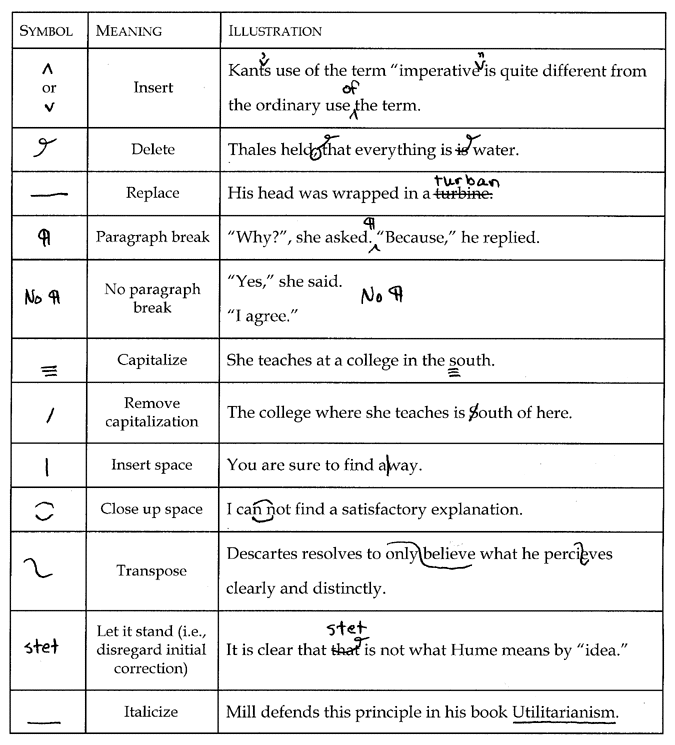 SYMBOL MEANING ILLUSTRATION
^ or v Insert Kant's use of the term "imperative" is quite different from
of
the ordinary use the term.
Delete Thales held that everything is is water.
turban
Replace His head was wrapped in a turbine.
¶ Paragraph break "Why?", she asked. ¶ "Because," he replied.
No ¶ No paragraph break "Yes," she said. No ¶
"I agree."
≡ Capitalize She teaches at a college in the south.
/ Remove capitalization The college where she teaches is South of here.
| Insert space You are sure to find a|way.
Close up space I can not find a satisfactory explanation.
Transpose Descartes resolves to only believe what he percieves
clearly and distinctly.
stet
stet Let it stand (i.e., disregard initial correction) It is clear that that is not what Hume means by "idea."
__ Italicize Mill defends this principle in his book Utilitarianism.